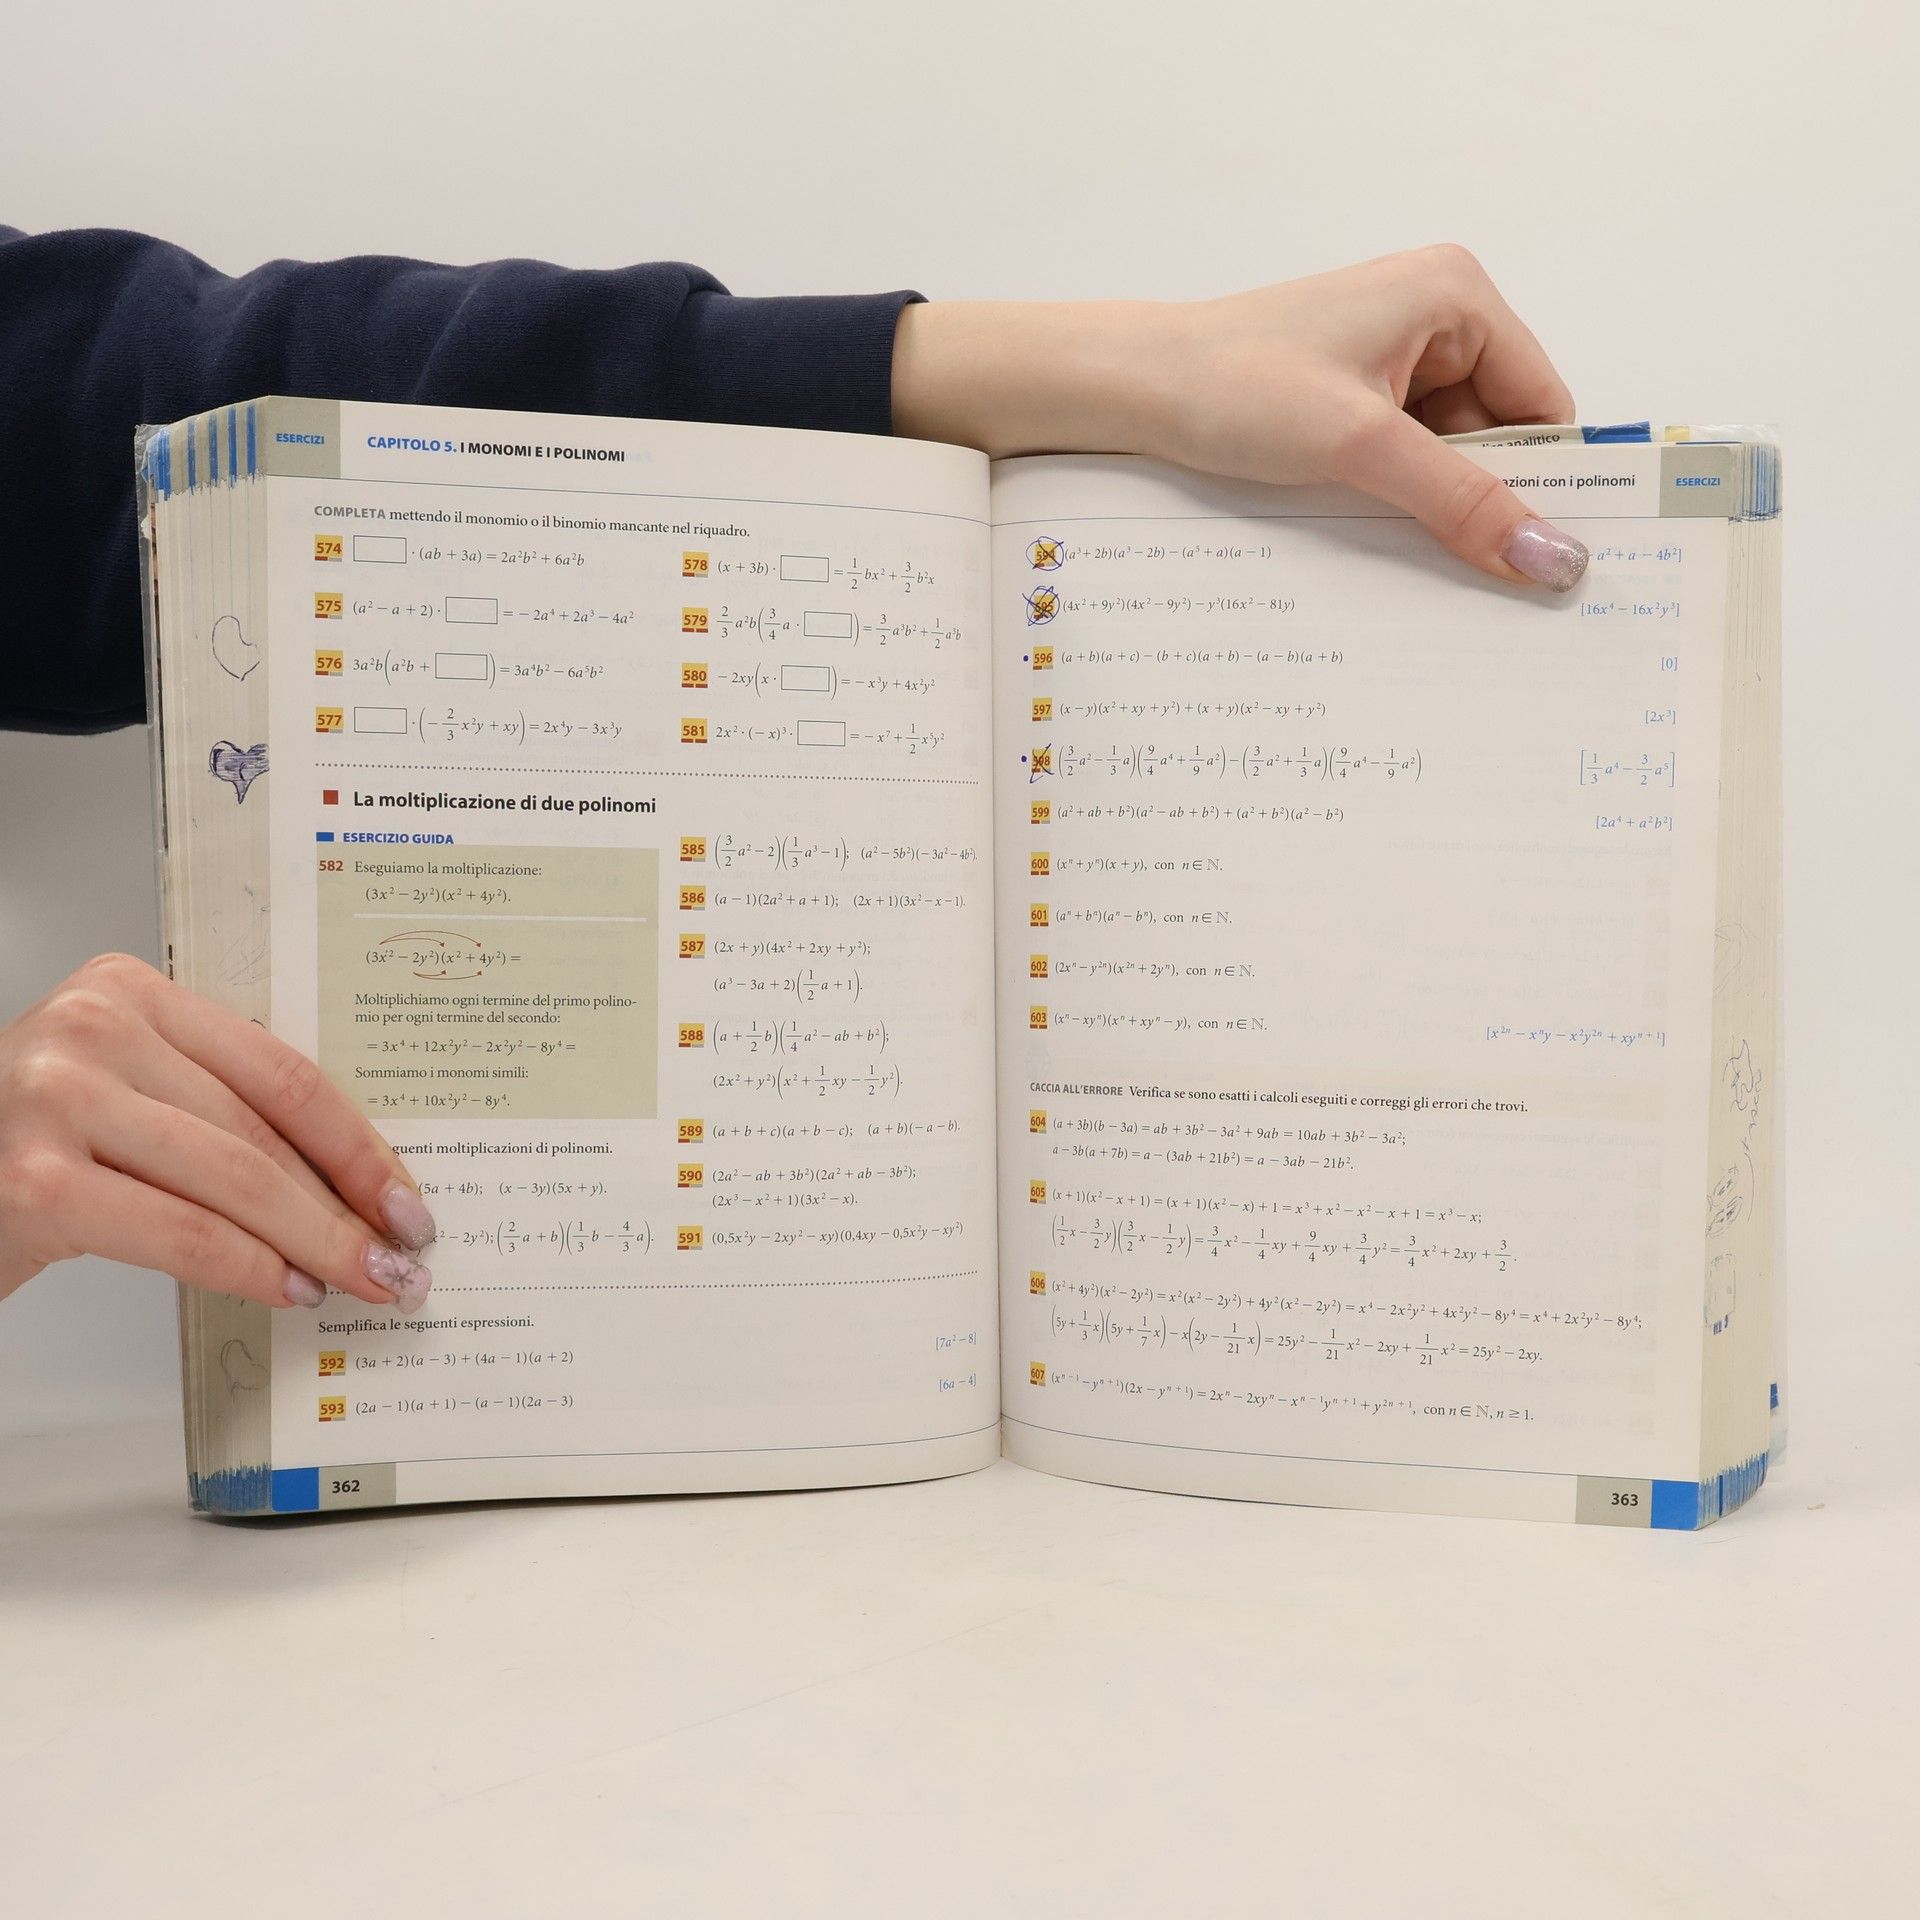 ESERCIZI
CAPITOLO 5. I MONOMI E I POLINOMI
COMPLETA mettendo il monomio o il binomio mancante nel riquadro.
574 □ · (ab + 3a) = 2a²b² + 6a²b
575 (a² − a + 2) · □ = − 2a⁴ + 2a³ − 4a²
576 3a²b(a²b + □) = 3a⁴b² − 6a⁵b²
577 □ · (− 2/3 x²y + xy) = 2x⁴y − 3x³y
578 (x + 3b) · □ = 1/2 bx² + 3/2 b²x
579 2/3 a²b(3/4 a · □) = 3/2 a³b² + 1/2 a³b
580 − 2xy(x · □) = − x³y + 4x²y²
581 2x² · (− x)³ · □ = − x⁷ + 1/2 x⁵y²
La moltiplicazione di due polinomi
ESERCIZIO GUIDA
582 Eseguiamo la moltiplicazione:
(3x² − 2y²)(x² + 4y²).
(3x² − 2y²)(x² + 4y²) =
Moltiplichiamo ogni termine del primo polino-
mio per ogni termine del secondo:
= 3x⁴ + 12x²y² − 2x²y² − 8y⁴ =
Sommiamo i monomi simili:
= 3x⁴ + 10x²y² − 8y⁴.
guenti moltiplicazioni di polinomi.
(5a + 4b); (x − 3y)(5x + y).
− 2y²); (2/3 a + b)(1/3 b − 4/3 a).
585 (3/2 a² − 2)(1/3 a³ − 1); (a² − 5b²)(− 3a² − 4b²).
586 (a − 1)(2a² + a + 1); (2x + 1)(3x² − x − 1).
587 (2x + y)(4x² + 2xy + y²);
(a³ − 3a + 2)(1/2 a + 1).
588 (a + 1/2 b)(1/4 a² − ab + b²);
(2x² + y²)(x² + 1/2 xy − 1/2 y²).
589 (a + b + c)(a + b − c); (a + b)(− a − b).
590 (2a² − ab + 3b²)(2a² + ab − 3b²);
(2x³ − x² + 1)(3x² − x).
591 (0,5x²y − 2xy² − xy)(0,4xy − 0,5x²y − xy²)
Semplifica le seguenti espressioni.
592 (3a + 2)(a − 3) + (4a − 1)(a + 2) [7a² − 8]
593 (2a − 1)(a + 1) − (a − 1)(2a − 3) [6a − 4]
362
analitico
azioni con i polinomi
ESERCIZI
594 (a³ + 2b)(a³ − 2b) − (a⁵ + a)(a − 1) a² + a − 4b²]
595 (4x² + 9y²)(4x² − 9y²) − y³(16x² − 81y) [16x⁴ − 16x²y³]
596 (a + b)(a + c) − (b + c)(a + b) − (a − b)(a + b) [0]
597 (x − y)(x² + xy + y²) + (x + y)(x² − xy + y²) [2x³]
598 (3/2 a² − 1/3 a)(9/4 a⁴ + 1/9 a²) − (3/2 a² + 1/3 a)(9/4 a⁴ − 1/9 a²) [1/3 a⁴ − 3/2 a⁵]
599 (a² + ab + b²)(a² − ab + b²) + (a² + b²)(a² − b²) [2a⁴ + a²b²]
600 (xⁿ + yⁿ)(x + y), con n ∈ ℕ.
601 (aⁿ + bⁿ)(aⁿ − bⁿ), con n ∈ ℕ.
602 (2xⁿ − y²ⁿ)(x²ⁿ + 2yⁿ), con n ∈ ℕ.
603 (xⁿ − xyⁿ)(xⁿ + xyⁿ − y), con n ∈ ℕ. [x²ⁿ − xⁿy − x²y²ⁿ + xyⁿ⁺¹]
CACCIA ALL'ERRORE Verifica se sono esatti i calcoli eseguiti e correggi gli errori che trovi.
604 (a + 3b)(b − 3a) = ab + 3b² − 3a² + 9ab = 10ab + 3b² − 3a²;
a − 3b(a + 7b) = a − (3ab + 21b²) = a − 3ab − 21b².
605 (x + 1)(x² − x + 1) = (x + 1)(x² − x) + 1 = x³ + x² − x² − x + 1 = x³ − x;
(1/2 x − 3/2 y)(3/2 x − 1/2 y) = 3/4 x² − 1/4 xy + 9/4 xy + 3/4 y² = 3/4 x² + 2xy + 3/2.
606 (x² + 4y²)(x² − 2y²) = x²(x² − 2y²) + 4y²(x² − 2y²) = x⁴ − 2x²y² + 4x²y² − 8y⁴ = x⁴ + 2x²y² − 8y⁴;
(5y + 1/3 x)(5y + 1/7 x) − x(2y − 1/21 x) = 25y² − 1/21 x² − 2xy + 1/21 x² = 25y² − 2xy.
607 (xⁿ⁻¹ − yⁿ⁺¹)(2x − yⁿ⁺¹) = 2xⁿ − 2xyⁿ − xⁿ⁻¹yⁿ⁺¹ + y²ⁿ⁺¹, con n ∈ ℕ, n ≥ 1.
363